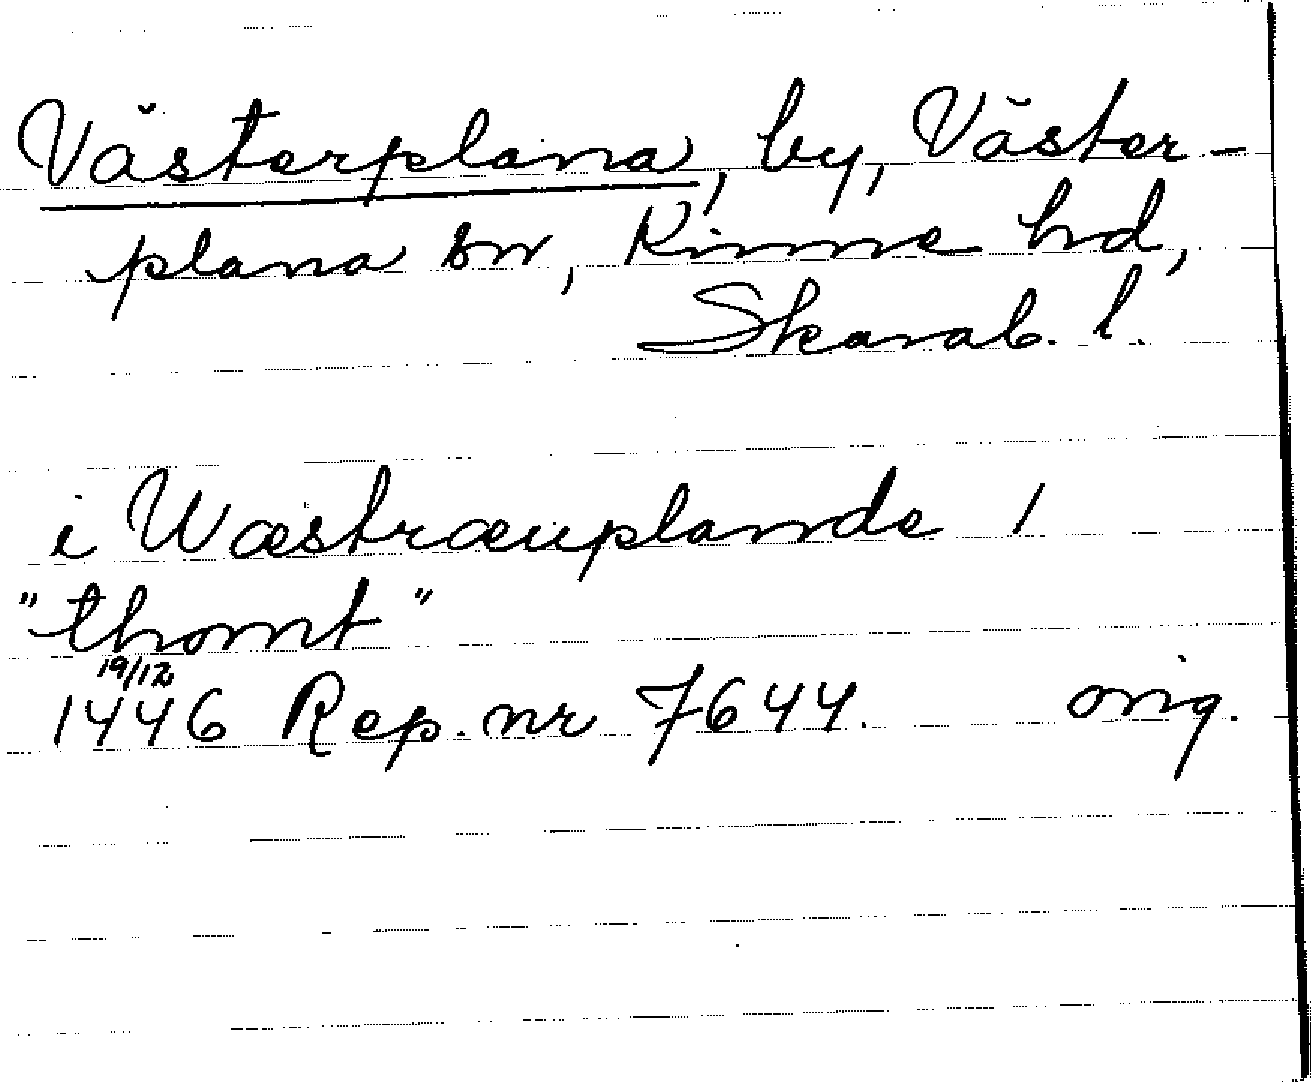 Västerplana, by, Väster-
plana sn, Kinne hd,
Skarab. l.
i Wæstræuplande 1
"thomt"
19/12
1446 Rep. nr 7644. orig.